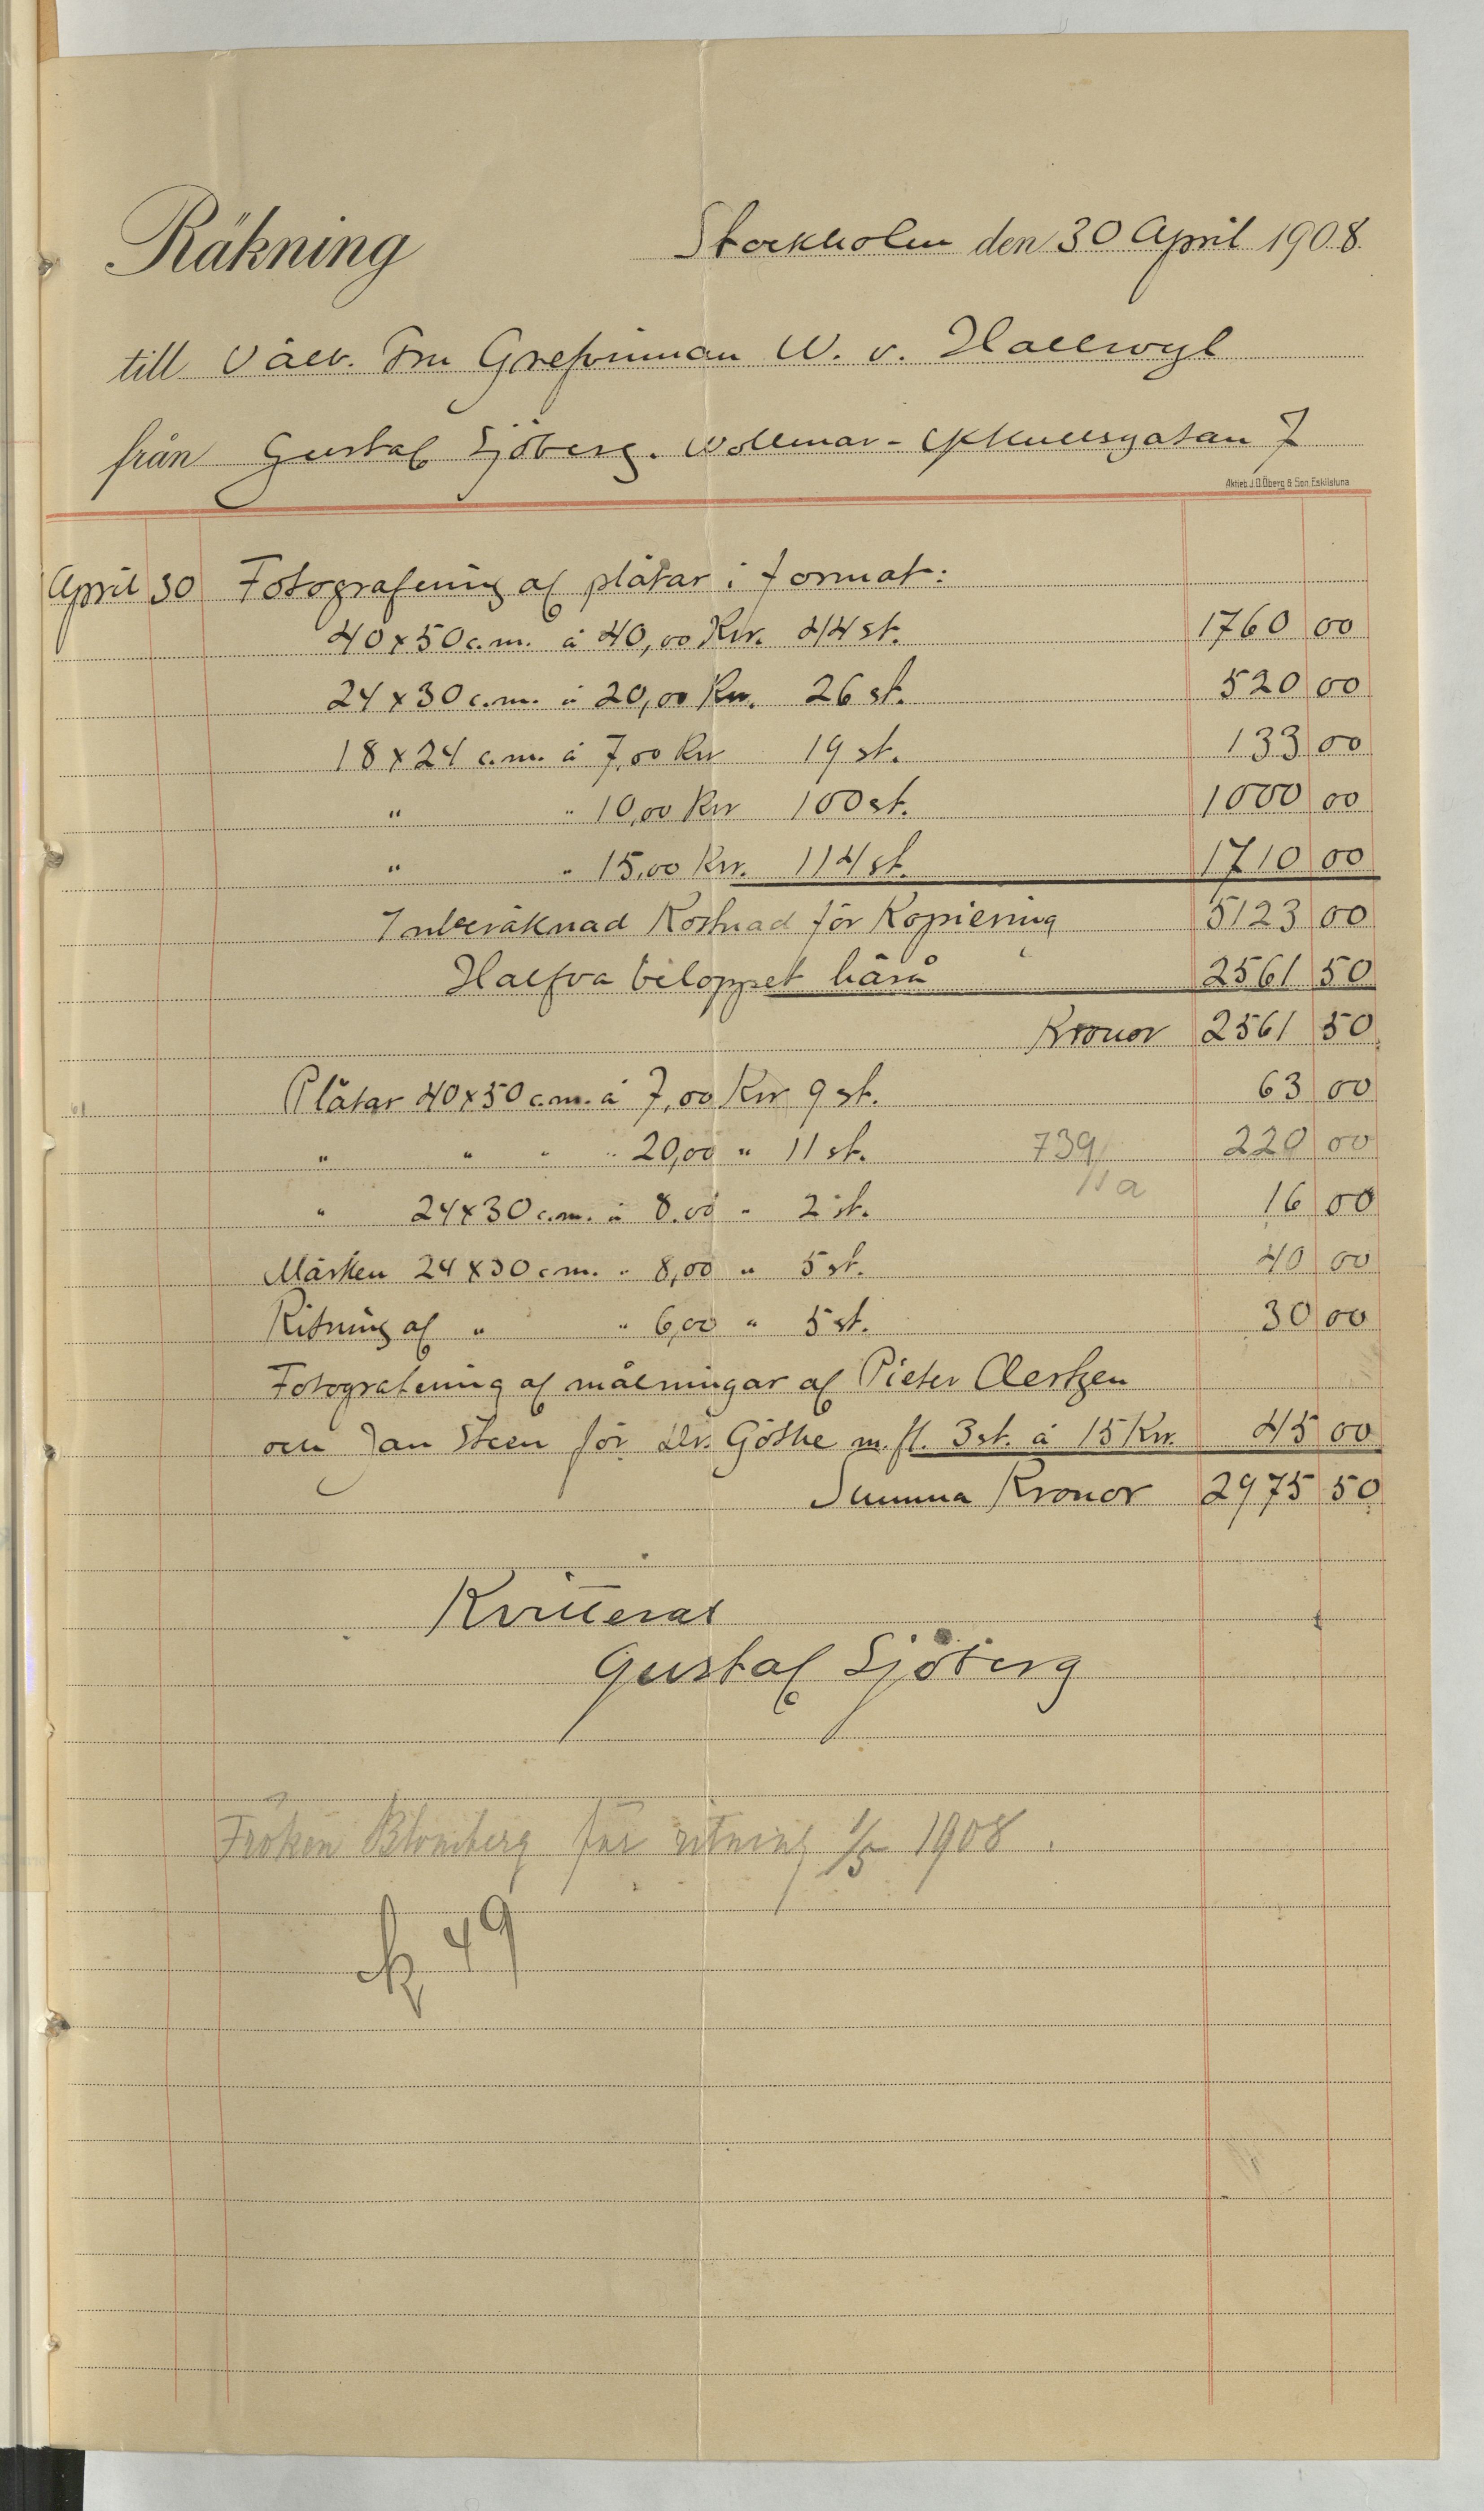 Räkning Stockholm den 30 April 1908.
till Välb. Fru Grefvinnan W. v. Hallwyl
från Gustaf Sjöberg. Wollmar-Ykkullsgatan 7
Aktieb. J.O. Öberg & Son. Eskilstuna
April 30 Fotografering af plåtar i format:
40x50 c.m. á 40,00 Kr. 44 st. 1760 00
24x30 c.m. á 20,00 Kr. 26 st. 520 00
18x24 c.m. á 7,00 Kr 19 st. 133 00
" " 10,00 Kr 100 st. 1000 00
" " 15,00 Kr. 114 st. 1710 00
Inberäknad Kostnad för Kopiering 5123 00
Halfva beloppet härå 2561 50
Kronor 2561 50
Plåtar 40x50 c.m. á 7,00 Kr 9 st. 63 00
" " " " 20,00 " 11 st. 739/11a 220 00
" 24x30 c.m. á 8.00 " 2 st. 16 00
Märken 24x30 c.m. " 8,00 " 5 st. 40 00
Ritning af " " 6,00 " 5 st. 30 00
Fotografering af målningar af Pieter Aertzen
och Jan Steen för Dr. Göthe m. fl. 3 st. á 15 Kr. 45 00
Summa Kronor 2975 50
Kvitteras
Gustaf Sjöberg
Fröken Blomberg för ritning 1/5 1908.
k 49